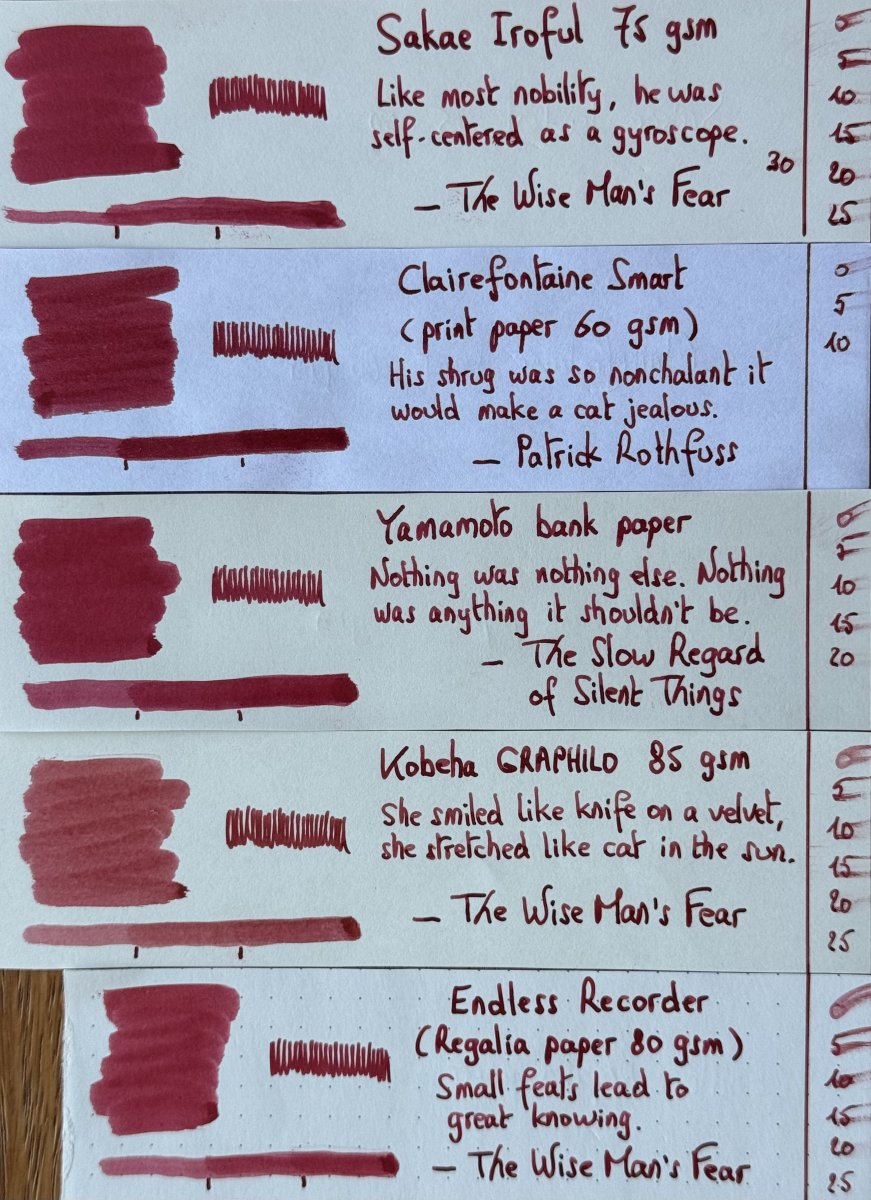 Sakae Iroful 75 gsm
Like most nobility, he was
self-centered as a gyroscope.
— The Wise Man's Fear
0
5
10
15
20
25
30
Clairefontaine Smart
(print paper 60 gsm)
His shrug was so nonchalant it
would make a cat jealous.
— Patrick Rothfuss
0
5
10
Yamamoto bank paper
Nothing was nothing else. Nothing
was anything it shouldn't be.
— The Slow Regard
of Silent Things
0
5
10
15
20
Kobeha GRAPHILO 85 gsm
She smiled like knife on a velvet,
she stretched like cat in the sun.
— The Wise Man's Fear
0
5
10
15
20
25
Endless Recorder
(Regalia paper 80 gsm)
Small feats lead to
great knowing.
— The Wise Man's Fear
0
5
10
15
20
25